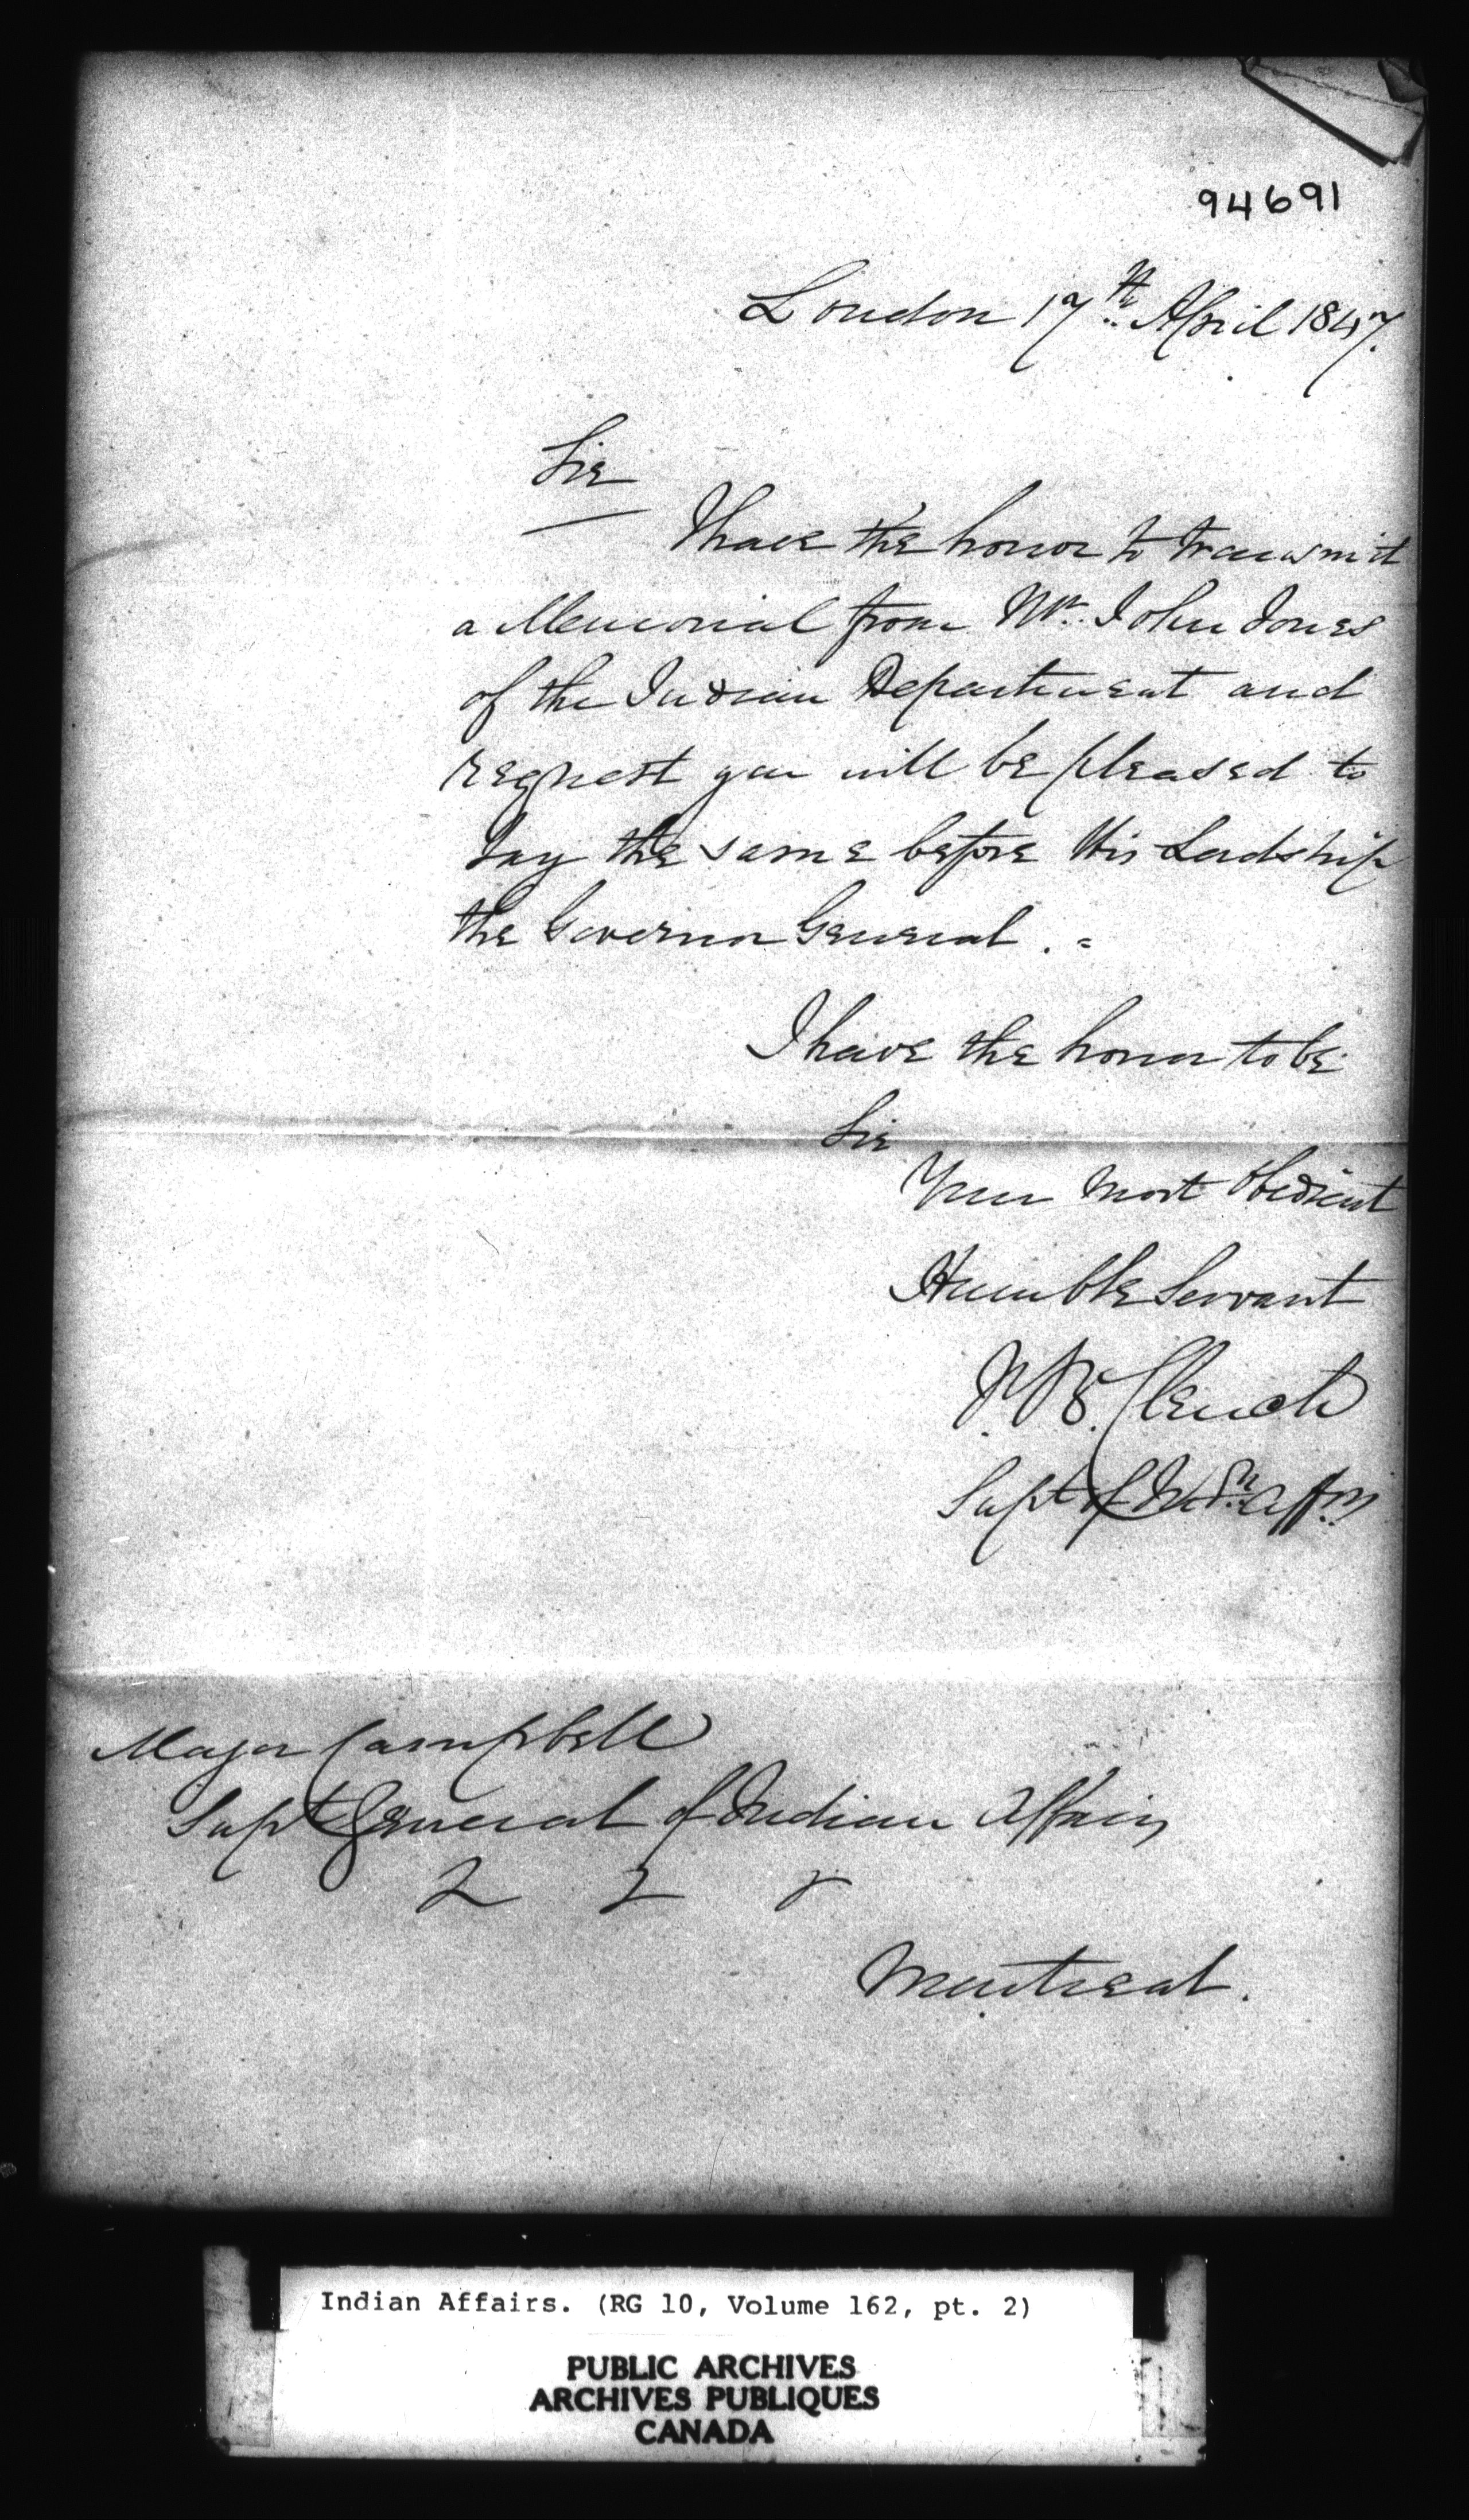 94691
London 17th April 1847.
Sir
I have the honor to transmit
a Memorial from Mr. John Jones
of the Indian Department and
request you will be pleased to
lay the same before His Lordship
the Governor General . =
I have the honor to be
Sir
Your most Obedient
Humble Servant
J. B. Clench
Supt of Indn Affrs
Major Campbell
Supt General of Indian Affairs
Montreal.
Indian Affairs. (RG 10, Volume 162, pt. 2)
PUBLIC ARCHIVES
ARCHIVES PUBLIQUES
CANADA